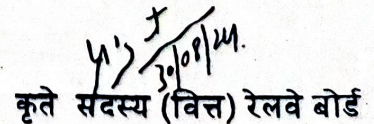 30/08/24.
कृते सदस्य (वित्त) रेलवे बोर्ड